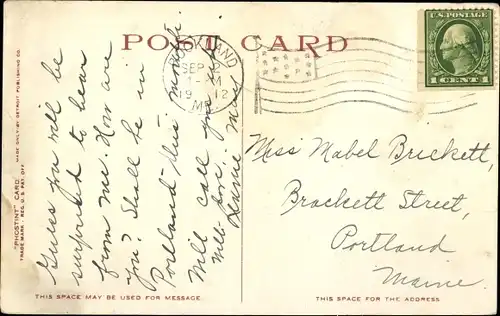 POST CARD
U.S. POSTAGE
1 CENT 1
SEP
19 12
ME.
"PHOSTINT" CARD
TRADE MARK REG. U.S. PAT. OFF.
MADE ONLY BY DETROIT PUBLISHING CO.
Guess you will be
surprised to hear
from me. How are
you? Shall be in
Portland this month
Will call you
Miss Mabel Brickett,
Brackett Street,
Portland
Maine.
THIS SPACE MAY BE USED FOR MESSAGE.
THIS SPACE IS FOR THE ADDRESS.